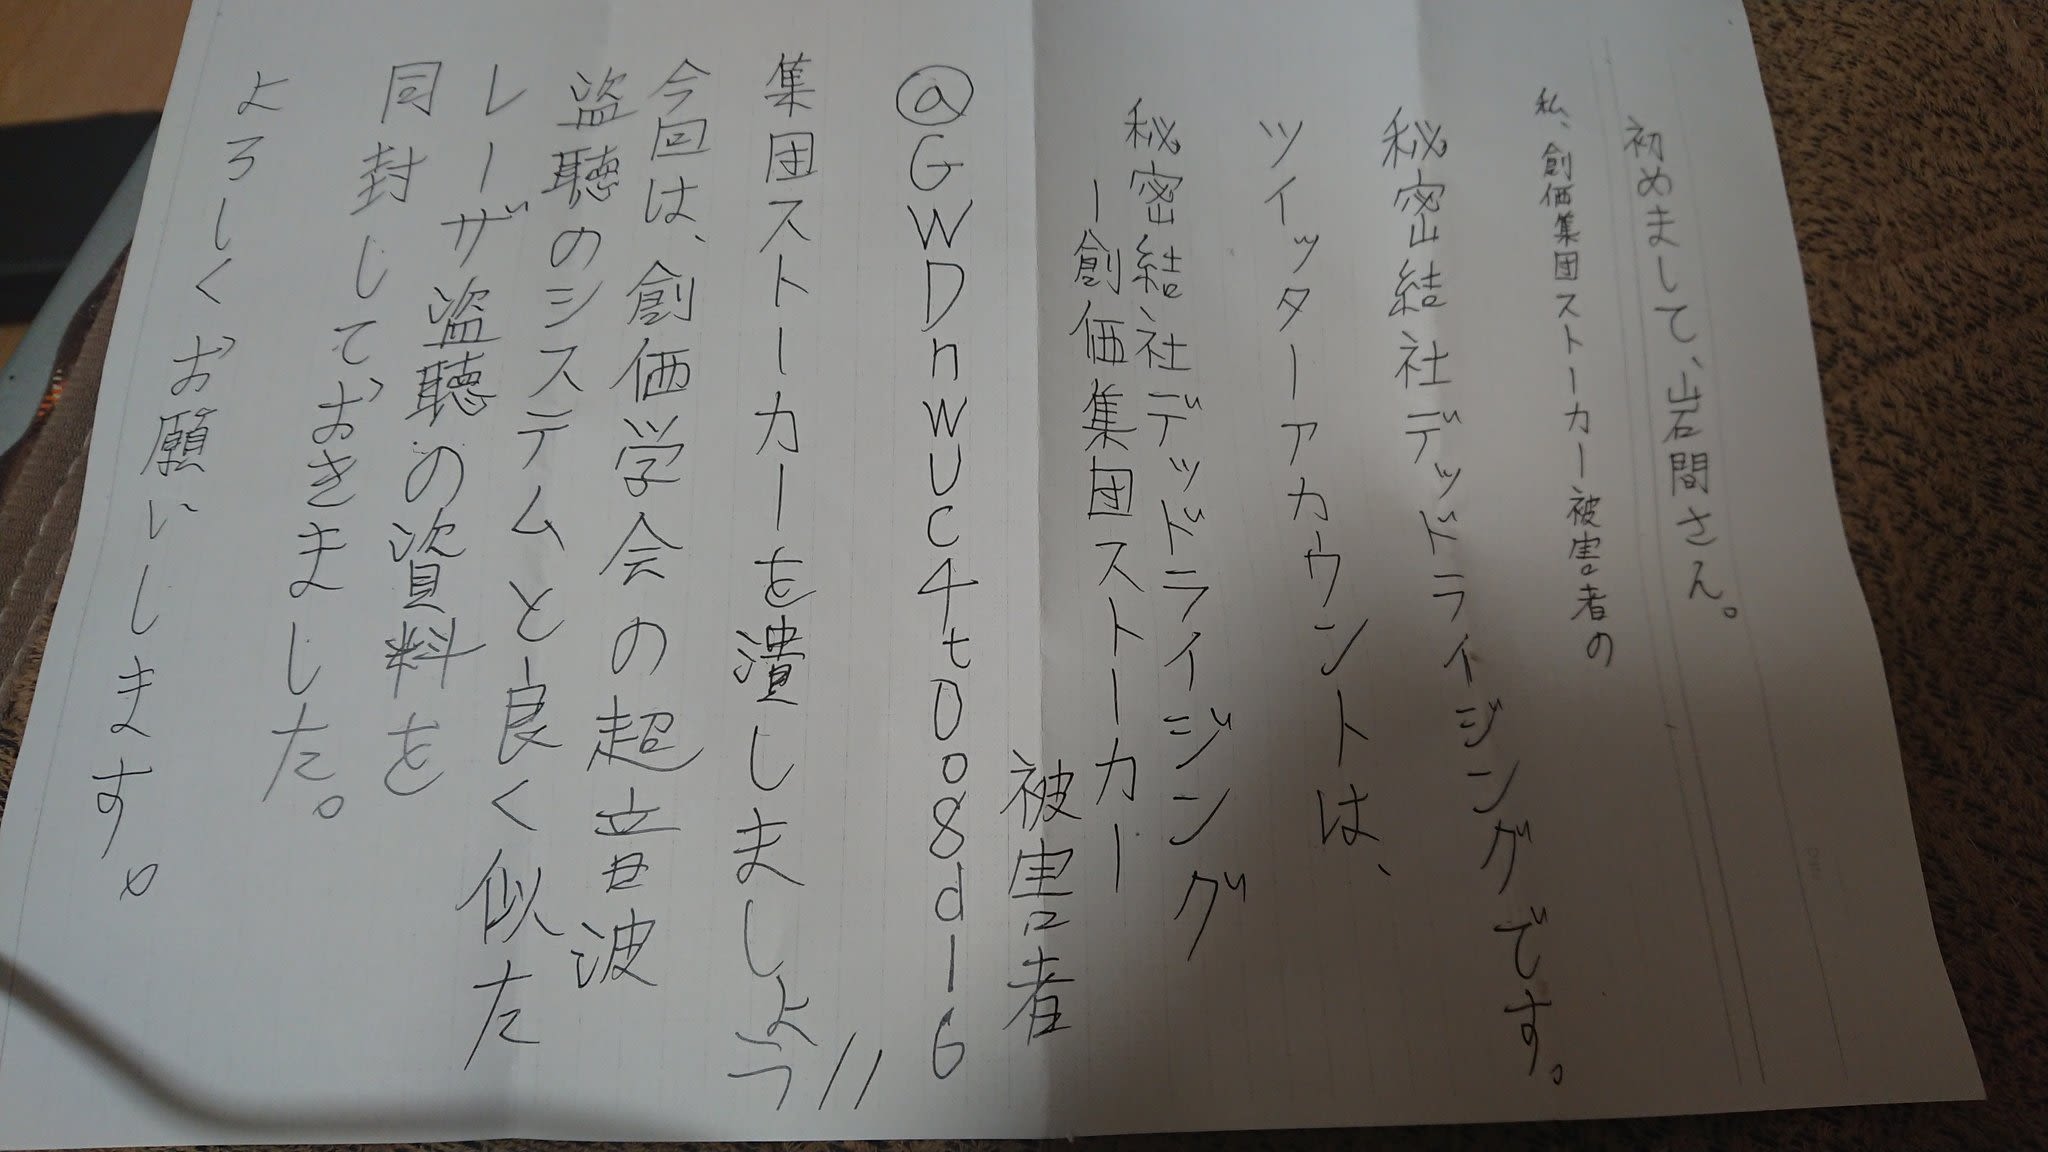 初めまして、岩間さん。
私、創価集団ストーカー被害者の
秘密結社デッドライジングです。
ツイッターアカウントは、
秘密結社デッドライジング
ー創価集団ストーカー
被害者
@GWDnwUC4tDo8d16
集団ストーカーを潰しましょう!!
今回は、創価学会の超音波
盗聴のシステムと良く似た
レーザ盗聴の資料を
同封しておきました。
よろしくお願いします。